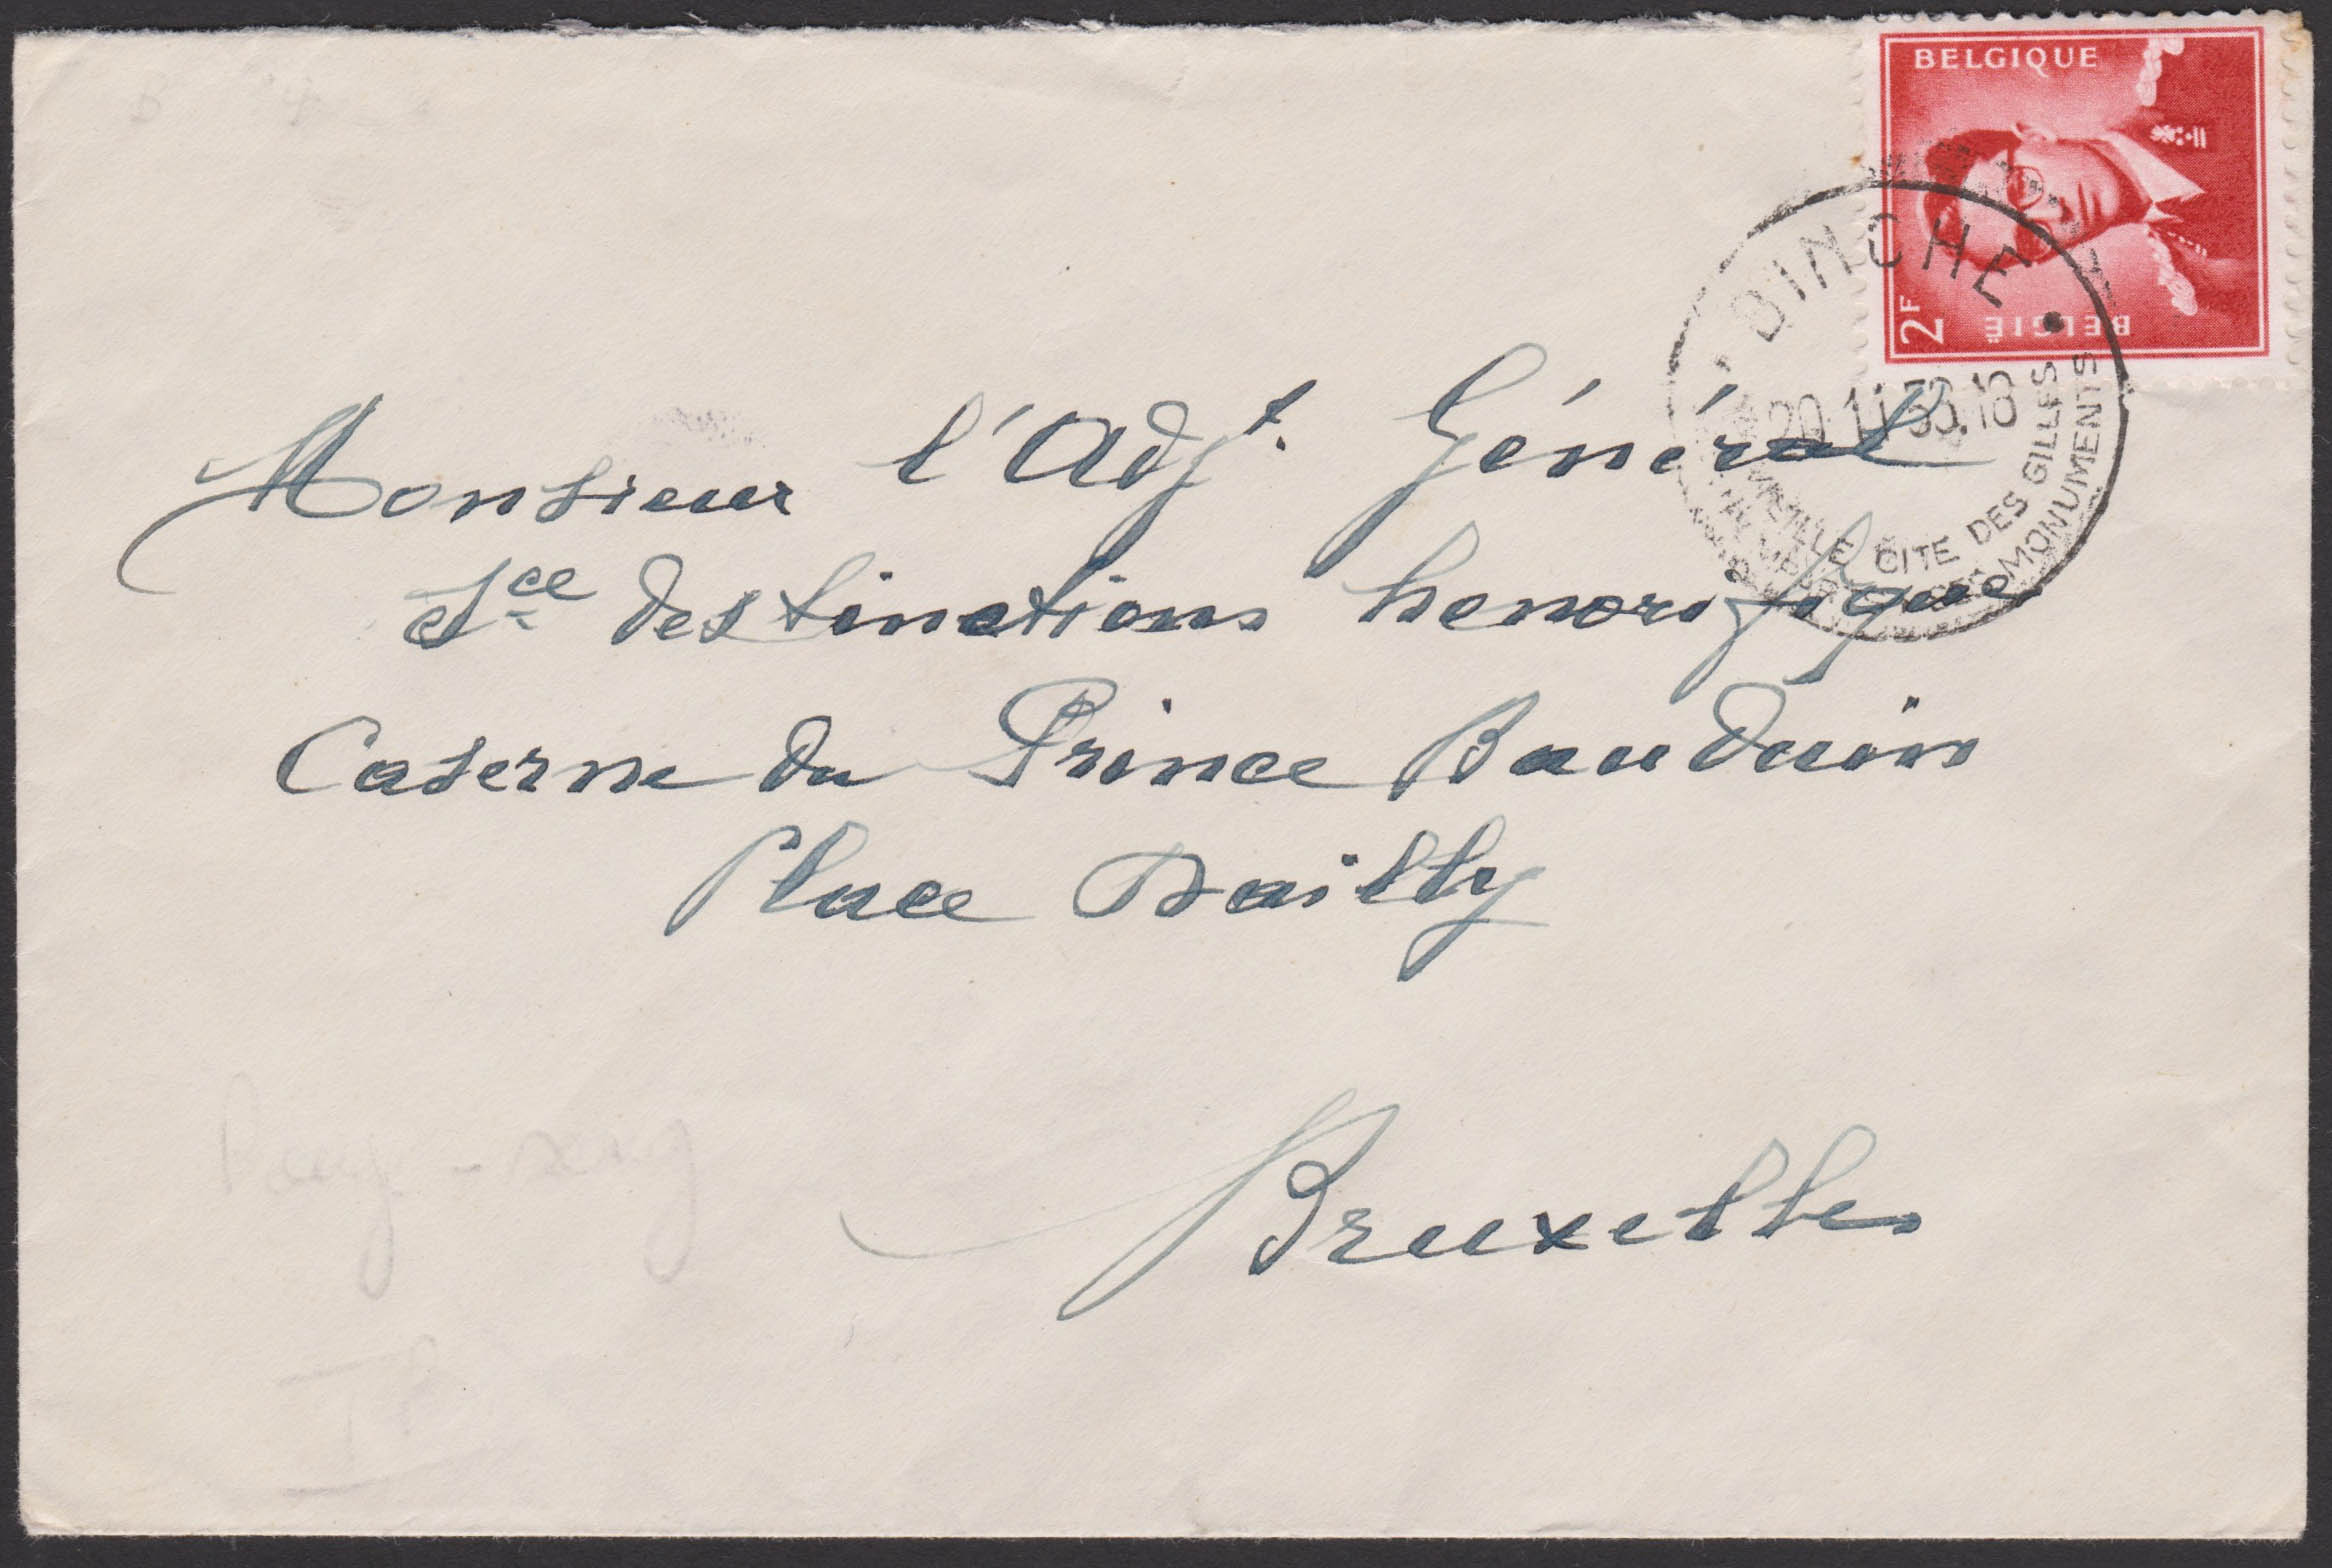 BELGIQUE
2F
BELGIË
BINCHE
VIEILLE CITE DES GILLES
MONUMENTS
Monsieur l'Adjt. Général
Sce distinctions honorifique
Caserne du Prince Bauduin
Place Dailly
Bruxelles